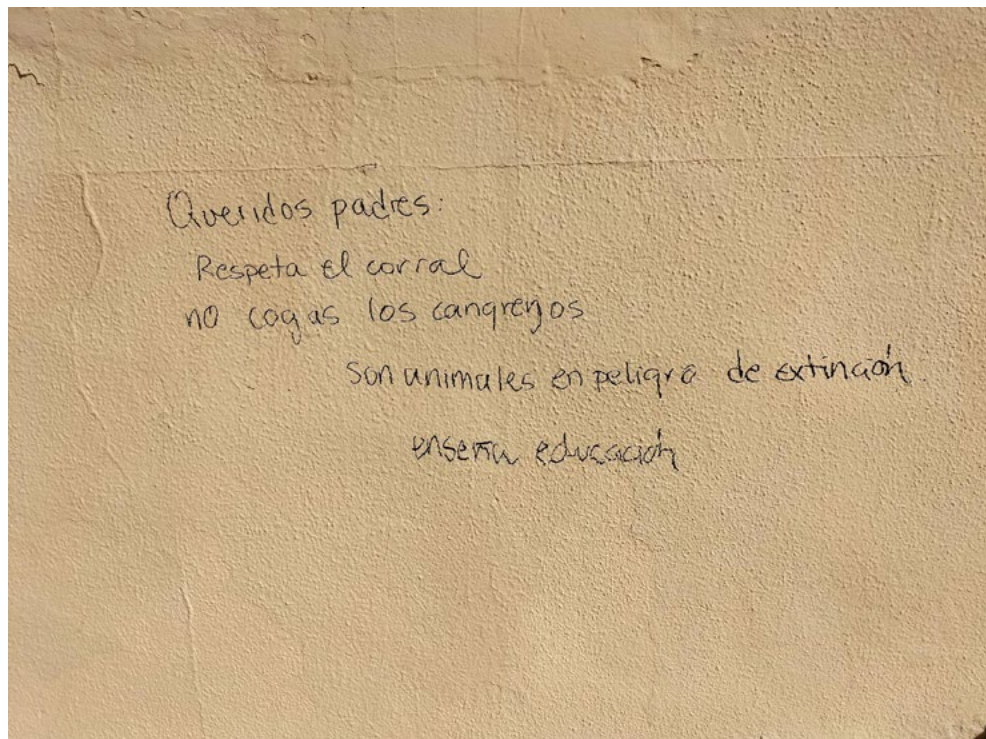 Queridos padres:
Respeta el corral
no cogas los cangrejos
son animales en peligro de extinción
enseña educación